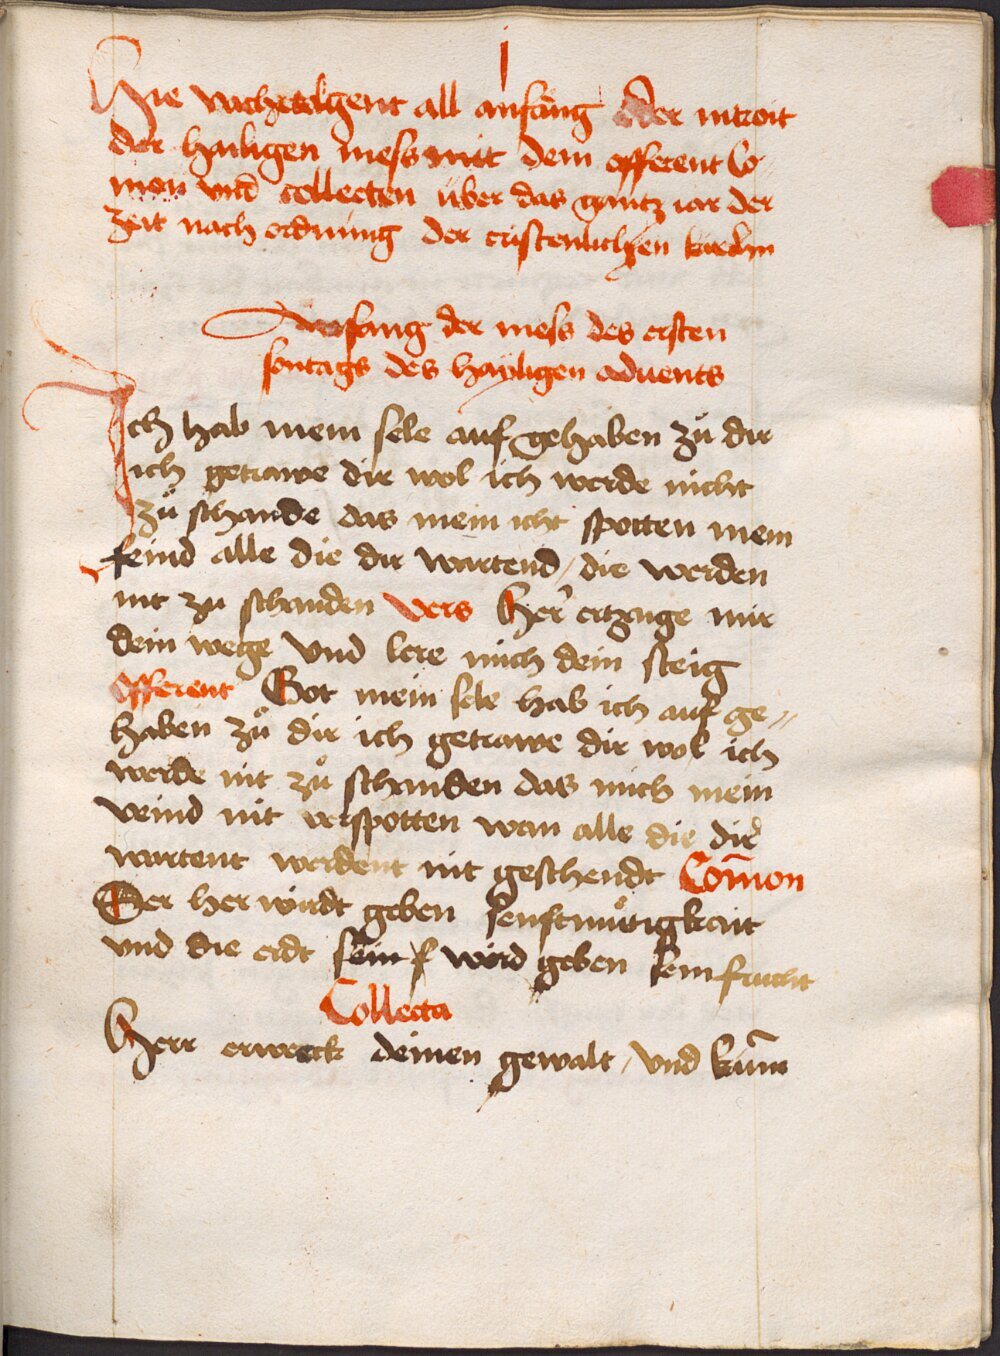 j
Hie nachvolgent all anfang der introit
der hailigen mess mit dem offerent Co¬
mon vnd collecten über das gantz iar der
zeit nach ordnung der cristenlichen kirchn
Anfang der mess des ersten
sontags des hayligen aduents
Ich hab mein sele auf gehaben zů dir
ich getrawe dir wol ich werde nicht
zů schande das mein icht spotten mein
feind alle die dir wartend / die werden
nit zu schanden vers Her ertzuge mir
dein wege vnd lere mich dein steig
offerent Got mein sele hab ich auf ge¬
haben zů dir ich getrawe dir wol ich
werde nit zů schanden das mich mein
veind nit verspotten wan alle die dir
wartent werdent nit geschendt Com̄on
Der her wirdt geben senftmůtigkait
vnd die erdt sein f wird geben sein frucht
Collecta
Herr erweck deinen gewalt / vnd kum̄